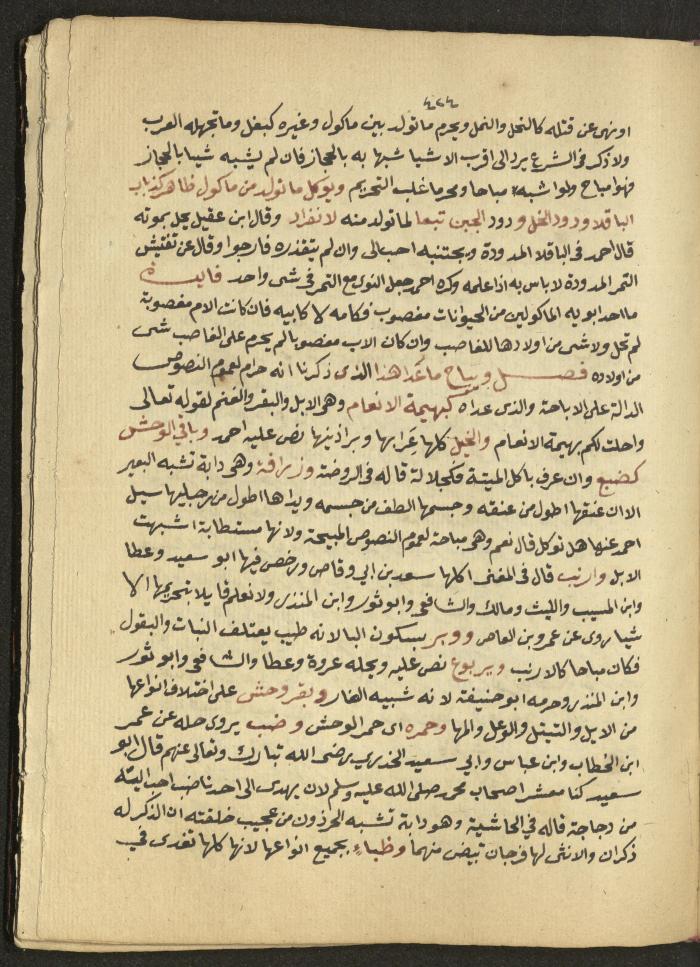 ٤٢٤
او نهى عن قتله كالنحل والنمل ويحرم ما تولد بين ماكول وغيره كبغل وما تجهله العرب
ولا ذكر في الشرع يرد الى اقرب الاشيا شبها به بالحجاز فان لم يشبه شيا بالحجاز
فهو مباح ولو اشبه مباحا ومحرما غلب التحريم ويوكل ما تولد من ماكول طاهر كذباب
الباقلا ودود الخل ودود الجبن تبعا لما تولد منه لا انفراد وقال ابن عقيل يحل بموته
قال احمد في الباقلا المدودة ويجتنبه احب الى وان لم يتقذره فارجوا وقال عن تفتيش
التمر المدودة لا باس به اذا علمه وكره احمد جعل النوى مع التمر في شى واحد فايدة
ما احد ابويه الماكولين من الحيوانات مغصوب فكامه لا كابيه فان كانت الام مغصوبة
لم تحل ولا شى من اولادها للغاصب وان كان الاب مغصوبا لم يحرم على الغاصب شى
من اولاده فصل ويباح ما عدا هذا الذى ذكرنا انه حرام لعموم النصوص
الدالة على الاباحة والذى عداه كبهيمة الانعام وهى الابل والبقر والغنم لقوله تعالى
واحلت لكم بهيمة الانعام والخيل كلها عرابها وبراذينها نص عليه احمد وباقي الوحش
كضبع وان عرف باكل الميتة فكجلالة قاله في الروضة وزرافة وهى دابة تشبه البعير
الا ان عنقها اطول من عنقه وجسمها الطف من جسمه ويداها اطول من رجليها سيل
احمد عنها هل توكل قال نعم وهى مباحة لعموم النصوص المبيحة ولانها مستطابة اشبهت
الابل وارنب قال في المغنى اكلها سعد بن ابي وقاص ورخص فيها ابو سعيد وعطا
وابن المسيب والليث ومالك والشافعي وابو ثور وابن المنذر ولا نعلم قايلا بتحريمها الا
شيا روى عن عمرو بن العاص ووبر بسكون البا لانه طيب يعتلف النبات والبقول
فكان مباحا كالارنب ويربوع نص عليه ويحله عروة وعطا والشافعي وابو ثور
وابن المنذر وحرمه ابو حنيفة لانه شبيه الفار وبقر وحش على اختلاف انواعها
من الايل والتيتل والوعل والمها وحمره اى حمر الوحش وضب يروى حله عن عمر
ابن الخطاب وابن عباس وابي سعيد الخدري رضى الله تبارك وتعالى عنهم قال ابو
سعيد كنا معشر اصحاب محمد صلى الله عليه وسلم لان يهدى الى احدنا ضب احب اليه
من دجاجة قاله في الحاشية وهو دابة تشبه الحرذون من عجيب خلقته ان الذكر له
ذكران والانثى لها فرجان تبيض منهما وظباء بجميع انواعها لانها كلها تفدى في